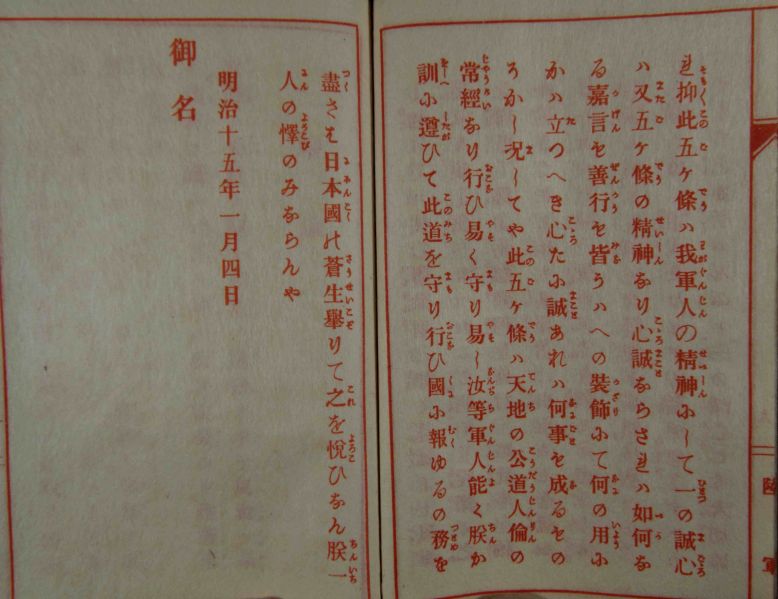 陸軍
れ抑此五ケ條ハ我軍人の精神にして一の誠心
ハ又五ケ條の精神なり心誠ならされハ如何な
る嘉言も善行も皆うハへの装飾にて何の用に
かハ立つへき心たに誠あれハ何事も成るもの
そかし况してや此五ケ條ハ天地の公道人倫の
常經なり行ひ易く守り易し汝等軍人能く朕か
訓に遵ひて此道を守り行ひ國に報ゆるの務を
盡さは日本國の蒼生擧りて之を悦ひなん朕一
人の懌のみならんや
明治十五年一月四日
御名